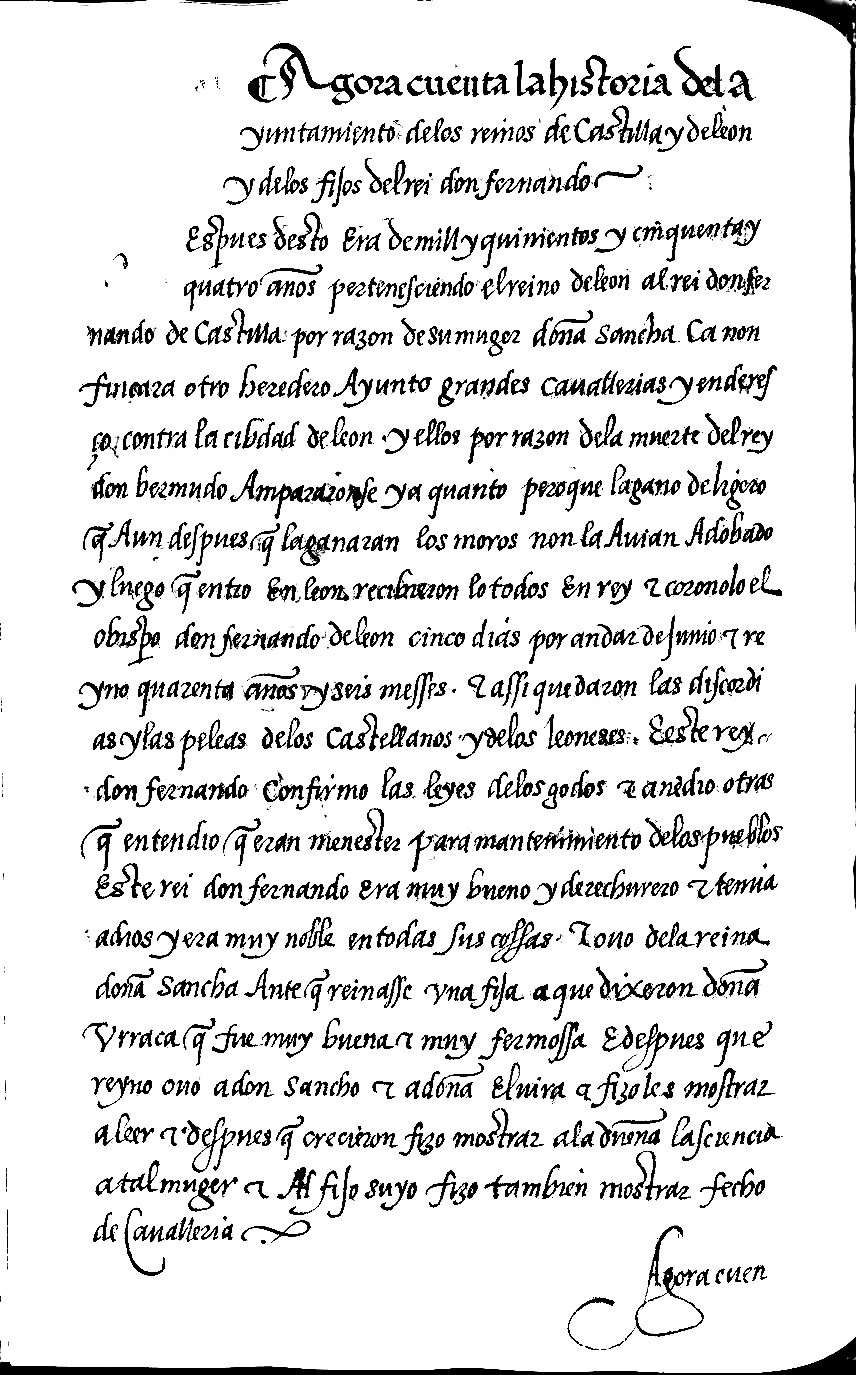 Agora cuenta la historia del a
yuntamiento delos reinos de Castilla y deleon
y delos fijos del rei don fernando
Espues desto Era de mill y quinientos y cinquenta y
quatro años pertenesciendo el reino deleon al rei don fer
nando de Castilla por razon de su muger doña sancha Ca non
fincara otro heredero Ayunto grandes cavallerias y enderes
ço contra la cibdad de leon y ellos por razon dela muerte del rey
don bermudo Ampararonse ya quanto pero que la gano de ligero
q̃ Aun despues q̃ la ganaran los moros non la Avian Adobado
y luego q̃ entro En leon recibieron lo todos En rey τ coronolo el
obispo don fernando de leon cinco dias por andar de Junio τ re
yno quarenta años y seis messes. τ assi quedaron las discordi
as y las peleas delos Castellanos y delos leoneses. E este rey
don fernando Confirmo las leyes delos godos τ anedio otras
q̃ entendio q̃ eran menester para mantenimiento delos pueblos
Este rei don fernando Era muy bueno y derechurero τ temia
a dios y era muy noble en todas sus cossas. τ ovo dela reina
doña Sancha Ante q̃ reinasse vna fija a que dixeron doña
Vrraca q̃ fue muy buena τ muy fermossa E despues que
reyno ovo a don Sancho τ a doña Elvira τ fizoles mostrar
a leer τ despues q̃ crecieron fizo mostrar ala dueña la sciencia
a tal muger τ Al fijo suyo fizo tambien mostrar fecho
de Cavalleria
Agora cuen